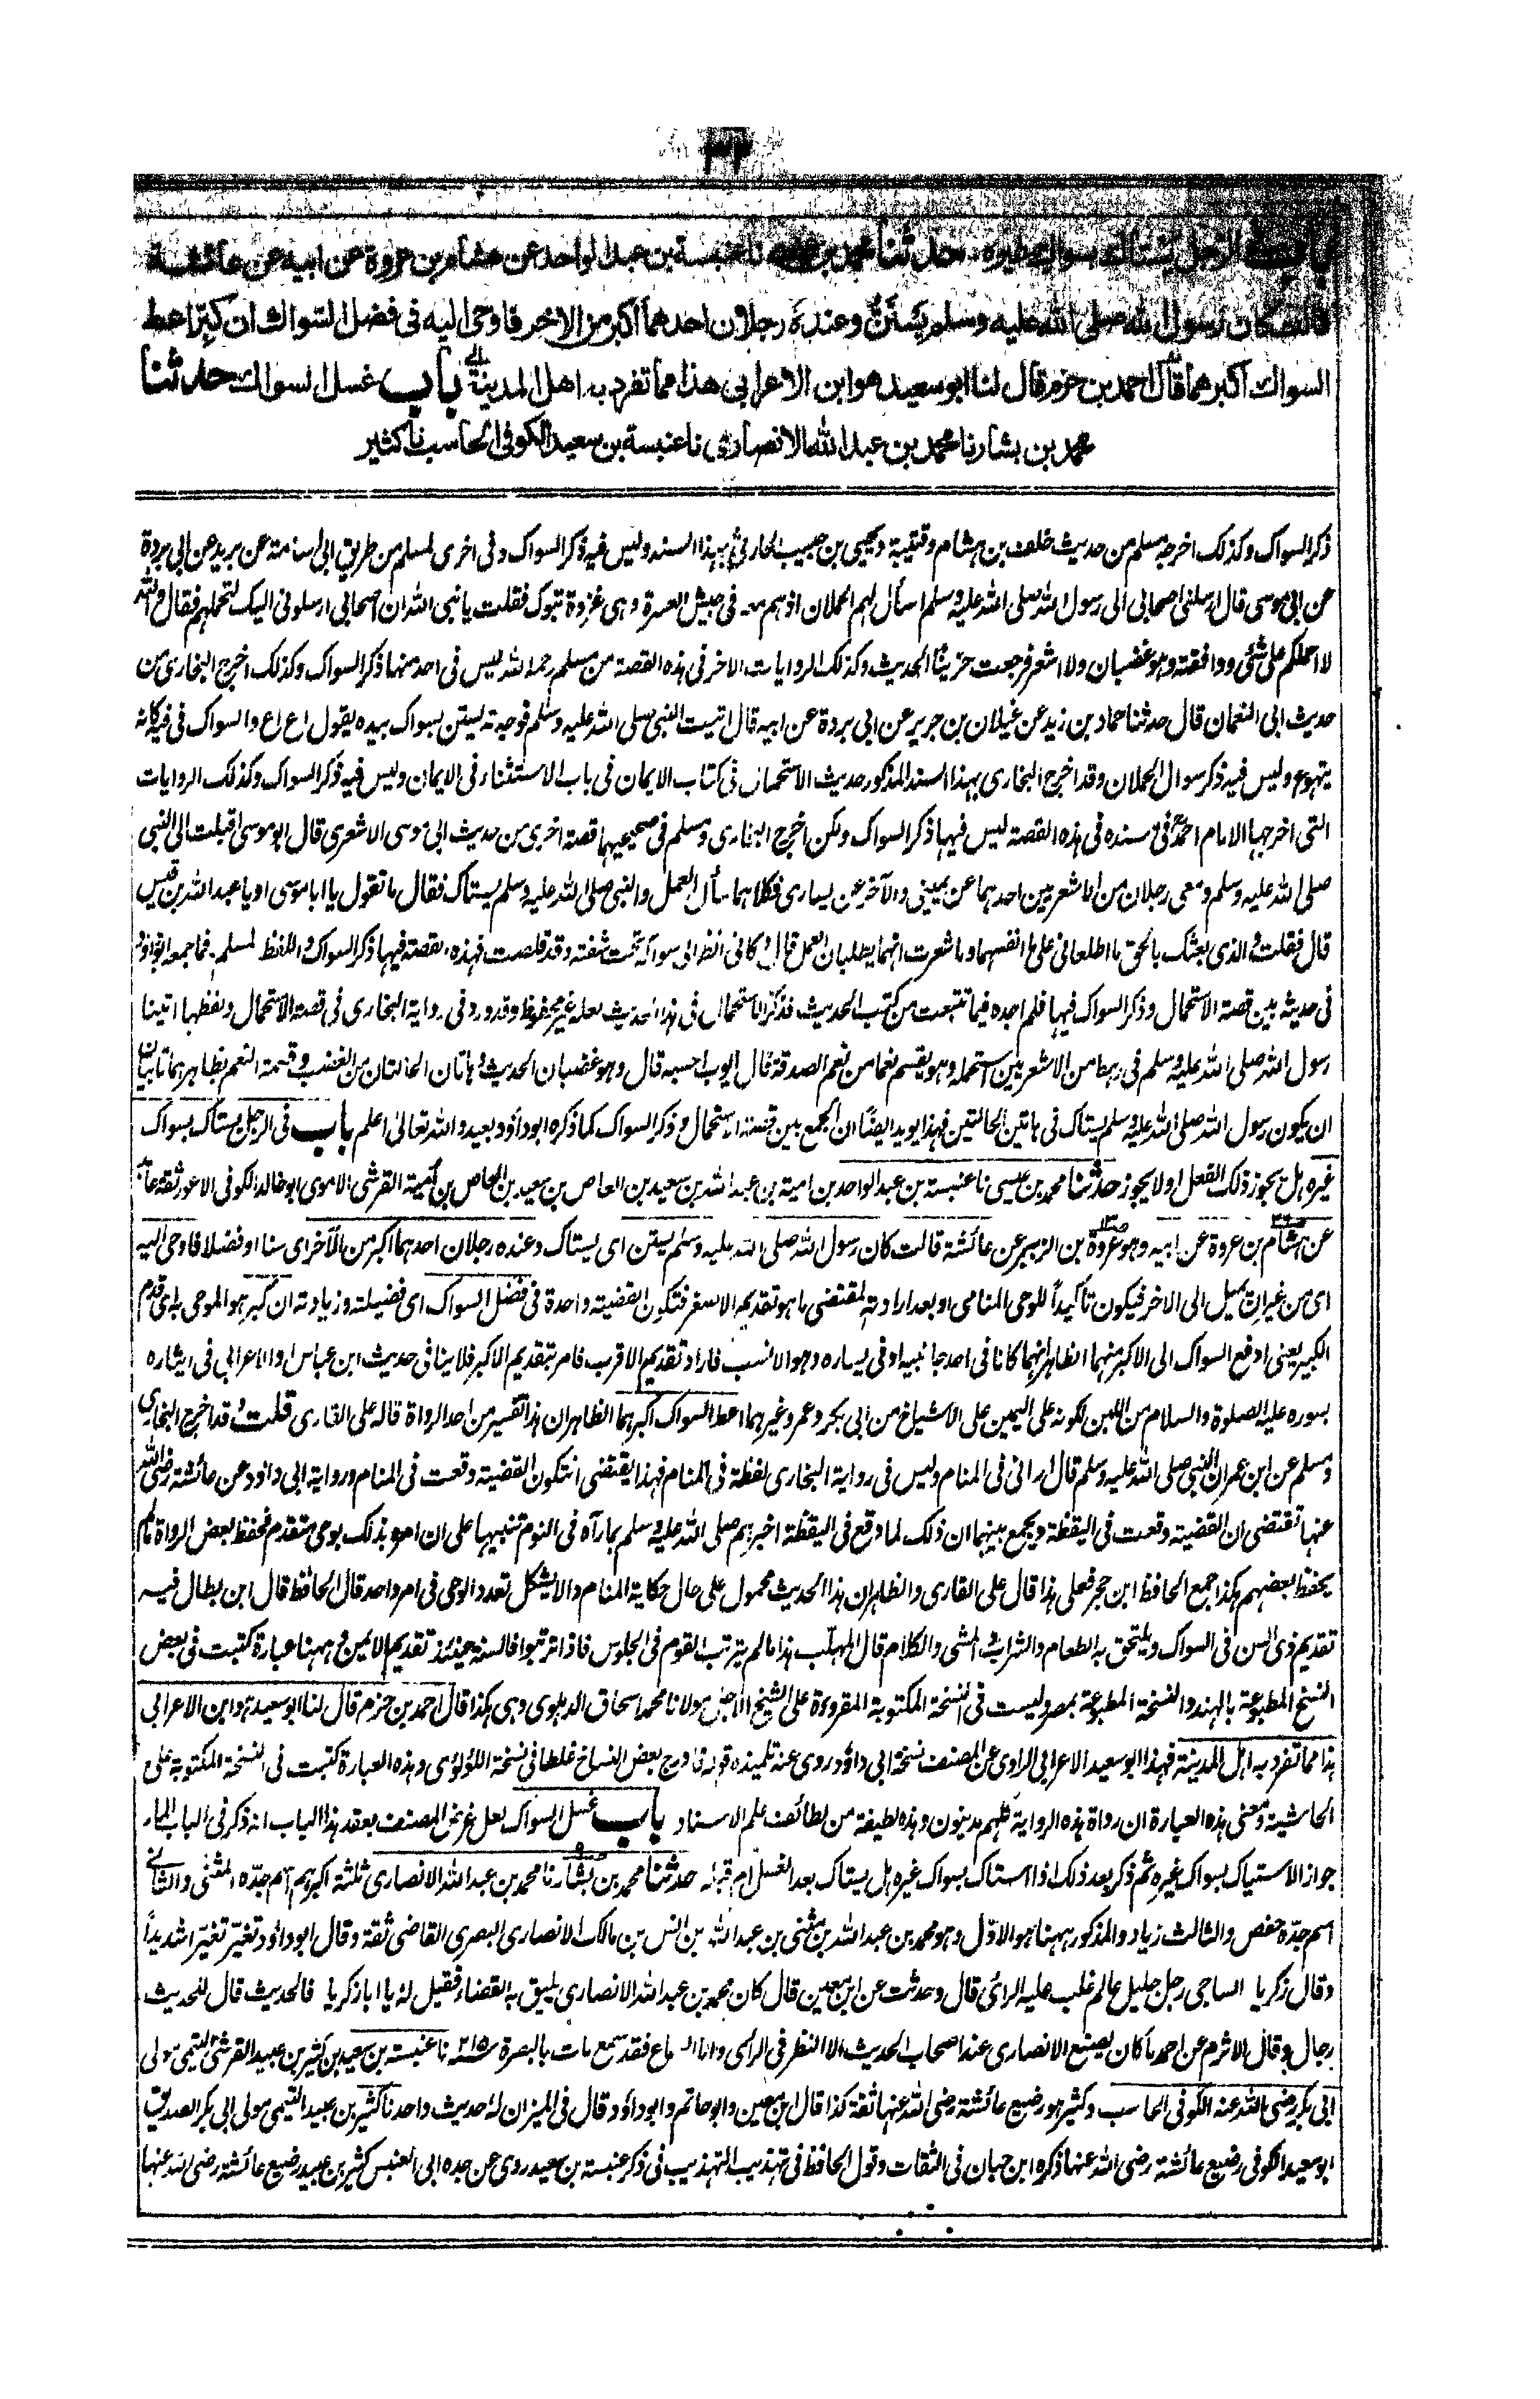 باب الرجل يستاك بسواك غيره حدثنا محمد بن نا عنبسة بن عبد الواحد عن هشام بن عروة عن ابيه عن عائشة
قالت كان رسول الله صلى الله عليه وسلم يَستَنُّ وعنده رجلان احدهما أكبر من الاخر فاوحى اليه فى فضل السواك ان كَبِّر اعط
السواك اكبرهما قال احمد بن حزم قال لنا ابو سعيد هو ابن الاعرابى هذا مما تفرد به اهل المدينة باب غسل السواك حدثنا
محمد بن بشار نا محمد بن عبد الله الانصارى نا عنبسة بن سعيد الكوفى الحاسب نا كثير
ذكر السواك وكذلك اخرجه مسلم من حديث خلف بن هشام وقتيبة ويحيى بن حبيب الحارثى بهذا السند وليس فيه ذكر السواك وفى اخرى لمسلم من طريق ابى اسامة عن بريد عن ابى بردة
عن ابى موسى قال ارسلنى اصحابى الى رسول الله صلى الله عليه وسلم اسأل لهم الحملان اذ هم معه فى جيش العسرة وهى غزوة تبوك فقلت يا نبى الله ان اصحابى ارسلونى اليك لتحملهم فقال والله
لا احملكم على شئ ووافقته وهو غضبان ولا اشعر فرجعت حزينا الحديث وكذلك الروايات الاخر فى هذه القصة من مسلم رحمه الله ليس فى احد منها ذكر السواك وكذلك اخرج البخارى من
حديث ابى النعمان قال حدثنا حماد بن زيد عن غيلان بن جرير عن ابى بردة عن ابيه قال اتيت النبى صلى الله عليه وسلم فوجدته يستن بسواك بيده يقول اع اع والسواك فى فيه كانه
يتهوع وليس فيه ذكر سوال الحملان وقد اخرج البخارى بهذا السند المذكور حديث الاستحمال فى كتاب الايمان فى باب الاستثناء فى الايمان وليس فيه ذكر السواك وكذلك الروايات
التى اخرجها الامام احمد فى مسنده فى هذه القصة ليس فيها ذكر السواك ولكن اخرج البخارى ومسلم فى صحيحيهما قصة اخرى من حديث ابى موسى الاشعرى قال ابو موسى اقبلت الى النبى
صلى الله عليه وسلم ومعى رجلان من الاشعريين احدهما عن يمينى والآخر عن يسارى فكلاهما سأل العمل والنبى صلى الله عليه وسلم يستاك فقال ما تقول يا ابا موسى او يا عبد الله بن قيس
قال فقلت والذى بعثك بالحق ما اطلعانى على ما انفسهما وما شعرت انهما يطلبان العمل قال وكانى انظر الى سواكه تحت شفته وقد قلصت فهذه القصة فيها ذكر السواك واللفظ لمسلم فما جمعه ابو داؤد
فى حديثه بين قصة الاستحمال وذكر السواك فيها فلم اجده فيما تتبعت من كتب الحديث فذكر الاستحمال فى هذا الحديث لعله غير محفوظ وقد ورد فى رواية البخارى فى قصة الاستحمال ولفظها اتينا
رسول الله صلى الله عليه وسلم فى رهط من الاشعريين استحمله وهو يقسم نعما من نعم الصدقة قال ايوب احسبه قال وهو غضبان الحديث وهاتان الحالتان من الغضب وقسمة النعم بظاهرهما تابيان
ان يكون رسول الله صلى الله عليه وسلم يستاك فى هاتين الحالتين فهذا يويد ايضا ان الجمع بين قصة الاستحمال وذكر السواك كما ذكره ابو داؤد بعيد والله تعالى اعلم باب فى الرجل يستاك بسواك
غيره هل يجوز ذلك الفعل او لا يجوز حدثنا محمد بن عيسى نا عنبسة بن عبد الواحد بن امية بن عبد الله بن سعيد بن العاص بن سعيد بن العاص بن امية القرشى الاموى ابو خالد الكوفى الاعور ثقة عابد
عن هشام بن عروة عن ابيه وهو عروة بن الزبير عن عائشة قالت كان رسول الله صلى الله عليه وسلم يستن اى يستاك وعنده رجلان احدهما اكبر من الآخر اى سنا او فضلا فاوحى اليه
اى من غير ان يميل الى الاخر فيكون تأكيداً للوحى المنامى او بعد ارادته لمقتضى ما هو تقديم الاصغر فتكون القضية واحدة فى فضل السواك اى فضيلته وزيادته ان كبر هو الموحى به اى قدم
الكبير يعنى ادفع السواك الى الاكبر منهما الظاهر انهما كانا فى احد جانبيه او فى يساره وهو الانسب فاراد تقديم الاقرب فامر بتقديم الاكبر فلا ينافى حديث ابن عباس والاعرابى فى ايثاره
بسوره عليه الصلوة والسلام من اللبن لكونه على اليمين على الاشياخ من ابى بكر وعمر وغيرهما اعط السواك اكبرهما الظاهر ان هذا تفسير من احد الرواة قاله على القارى قلت وقد اخرج البخارى
ومسلم عن ابن عمر ان النبى صلى الله عليه وسلم قال ارانى فى المنام وليس فى رواية البخارى لفظة فى المنام فهذا يقتضى ان تكون القضية وقعت فى المنام ورواية ابى داؤد عن عائشة رضى الله
عنها تقتضى ان القضية وقعت فى اليقظة ويجمع بينهما ان ذلك لما وقع فى اليقظة اخبرهم صلى الله عليه وسلم بما رآه فى النوم تنبيها على ان امره بذلك بوحى متقدم فحفظ بعض الرواة ما لم
يحفظ بعضهم هكذا جمع الحافظ ابن حجر فعلى هذا قال على القارى والظاهر ان هذا الحديث محمول على حال حكاية المنام والا يشكل تعدد الوحى فى امر واحد قال الحافظ قال ابن بطال فيه
تقديم ذى السن فى السواك ويلتحق به الطعام والشراب والمشى والكلام قال المهلب هذا ما لم يترتب القوم فى الجلوس فاذا ترتبوا فالسنة حينئذ تقديم الايمن وههنا عبارة كتبت فى بعض
النسخ المطبوعة بالهند والنسخة المطبوعة بمصر وليست فى النسخة المكتوبة المقروءة على الشيخ الاجل مولانا محمد اسحاق الدهلوى وهى هكذا قال احمد بن حزم قال لنا ابو سعيد هو ابن الاعرابى
هذا مما تفرد به اهل المدينة فهذا ابو سعيد الاعرابى الراوى عن المصنف نسخة ابى داؤد روى عنه تلميذه قوله فادرج بعض النساخ غلطا فى نسخة اللؤلؤى وهذه العبارة كتبت فى النسخة المكتوبة على
الحاشية ومعنى هذه العبارة ان رواة هذه الرواية كلهم مدنيون وهذه لطيفة من لطائف علم الاسناد باب غسل السواك لعل غرض المصنف بعقد هذا الباب انه ذكر فى الباب المار
جواز الاستياك بسواك غيره ثم ذكر بعد ذلك اذا استاك بسواك غيره هل يستاك بعد الغسل ام قبله حدثنا محمد بن بشار نا محمد بن عبد الله الانصارى ثلثة اكبرهم اسم جده المثنى والثانى
اسم جده حفص والثالث زياد والمذكور ههنا هو الاول وهو محمد بن عبد الله بن مثنى بن عبد الله بن انس بن مالك الانصارى البصرى القاضى ثقة وقال ابو داؤد تغير تغيرا شديداً
وقال زكريا الساجى رجل جليل عالم غلب عليه الرائى قال وحدثت عن ابن معين قال كان محمد بن عبد الله الانصارى يليق به القضاء فقيل له يا ابا زكريا فالحديث قال للحديث
رجال وقال الاثرم عن احمد ما كان يصنع الانصارى عند اصحاب الحديث الا النظر فى الراى واما السماع فقد سمع مات بالبصرة ۲۱۵ نا عنبسة بن سعيد بن كثير بن عبيد القرشى التيمى مولى
ابى بكر رضى الله عنه الكوفى الحاسب وكثير هو رضيع عائشة رضى الله عنها ثقة كذا قال ابن معين وابو حاتم وابو داؤد قال فى الميزان له حديث واحد نا كثير بن عبيد التيمى مولى ابى بكر الصديق
ابو سعيد الكوفى رضيع عائشة رضى الله عنها ذكره ابن حبان فى الثقات وقول الحافظ فى تهذيب التهذيب فى ذكر عنبسة بن سعيد روى عن جده ابى العنبس كثير بن عبيد رضيع عائشة رضى الله عنها